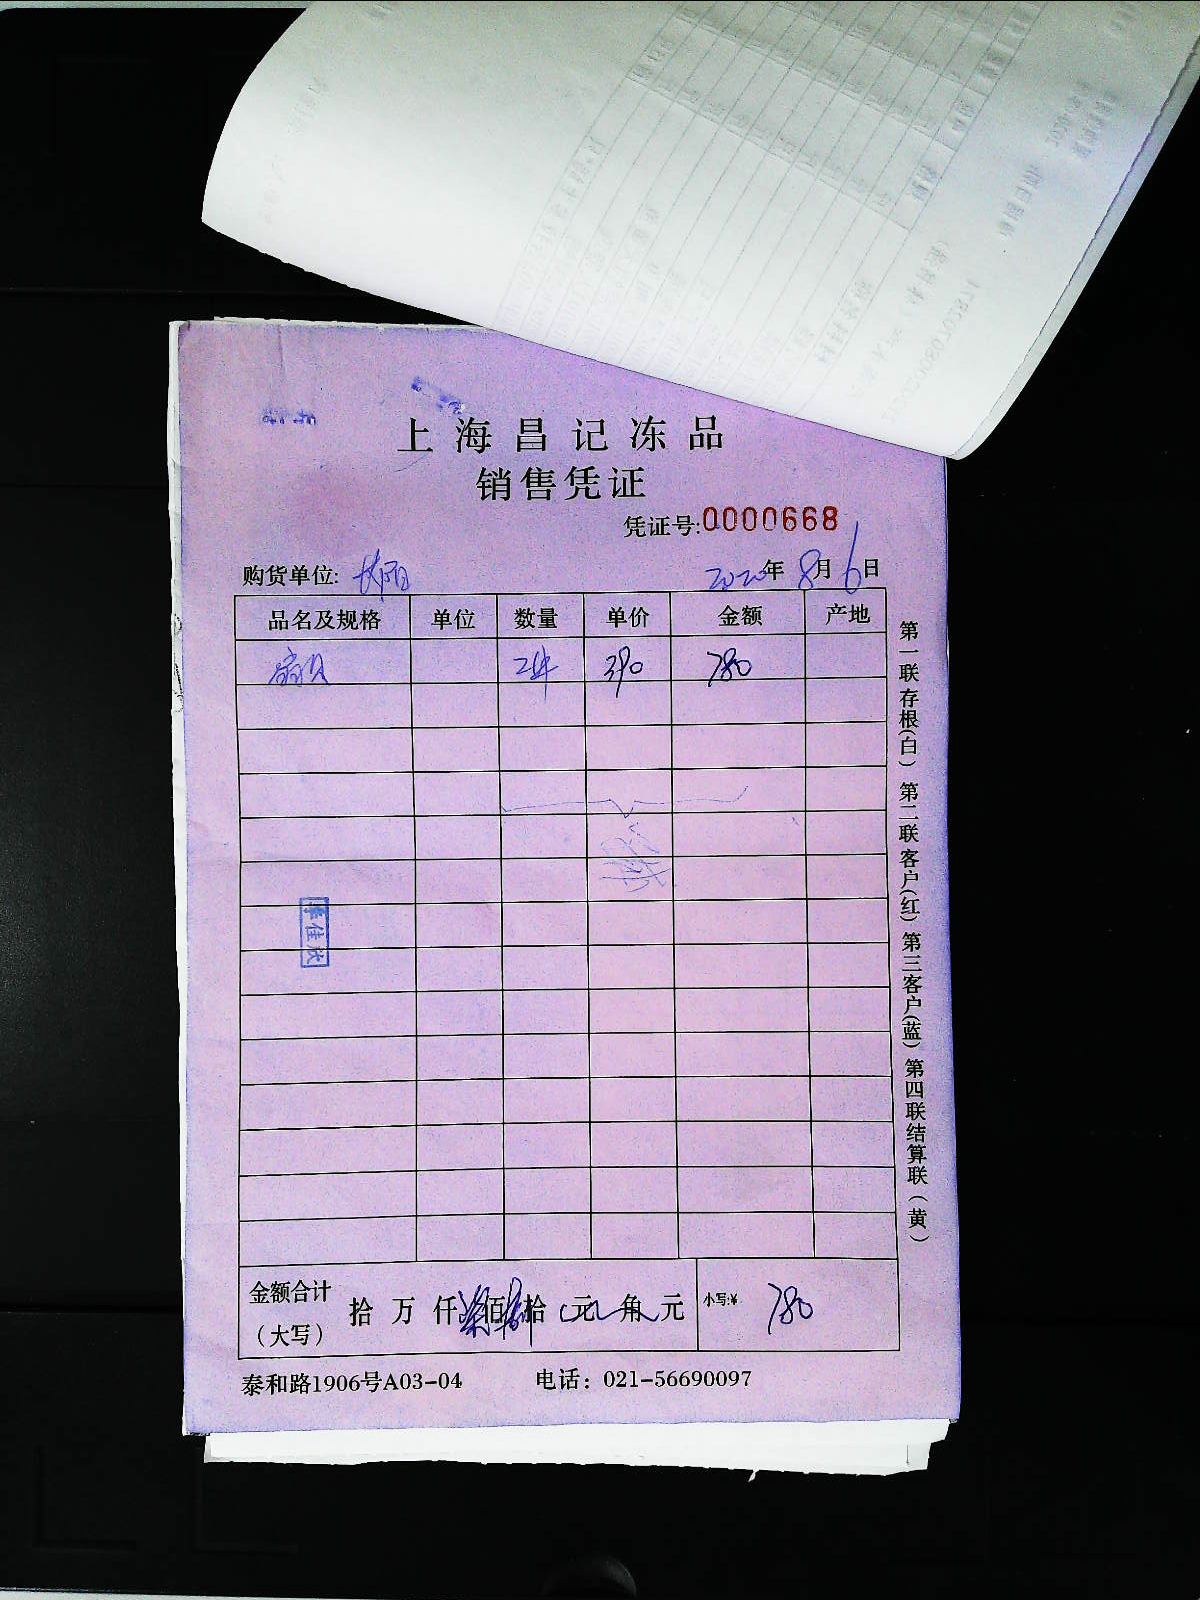 上海昌记冻品
销售凭证
凭证号:0000668
购货单位: 沈阳 2020年 8月 6日
品名及规格 单位 数量 单价 金额 产地
扇贝 2件 390 780
李佳欣
金额合计（大写） 拾 万 仟 柒 佰 捌 拾 元 角 元 小写:¥ 780
泰和路1906号A03-04 电话：021-56690097
第一联存根(白) 第二联客户(红) 第三客户(蓝) 第四联结算联（黄）